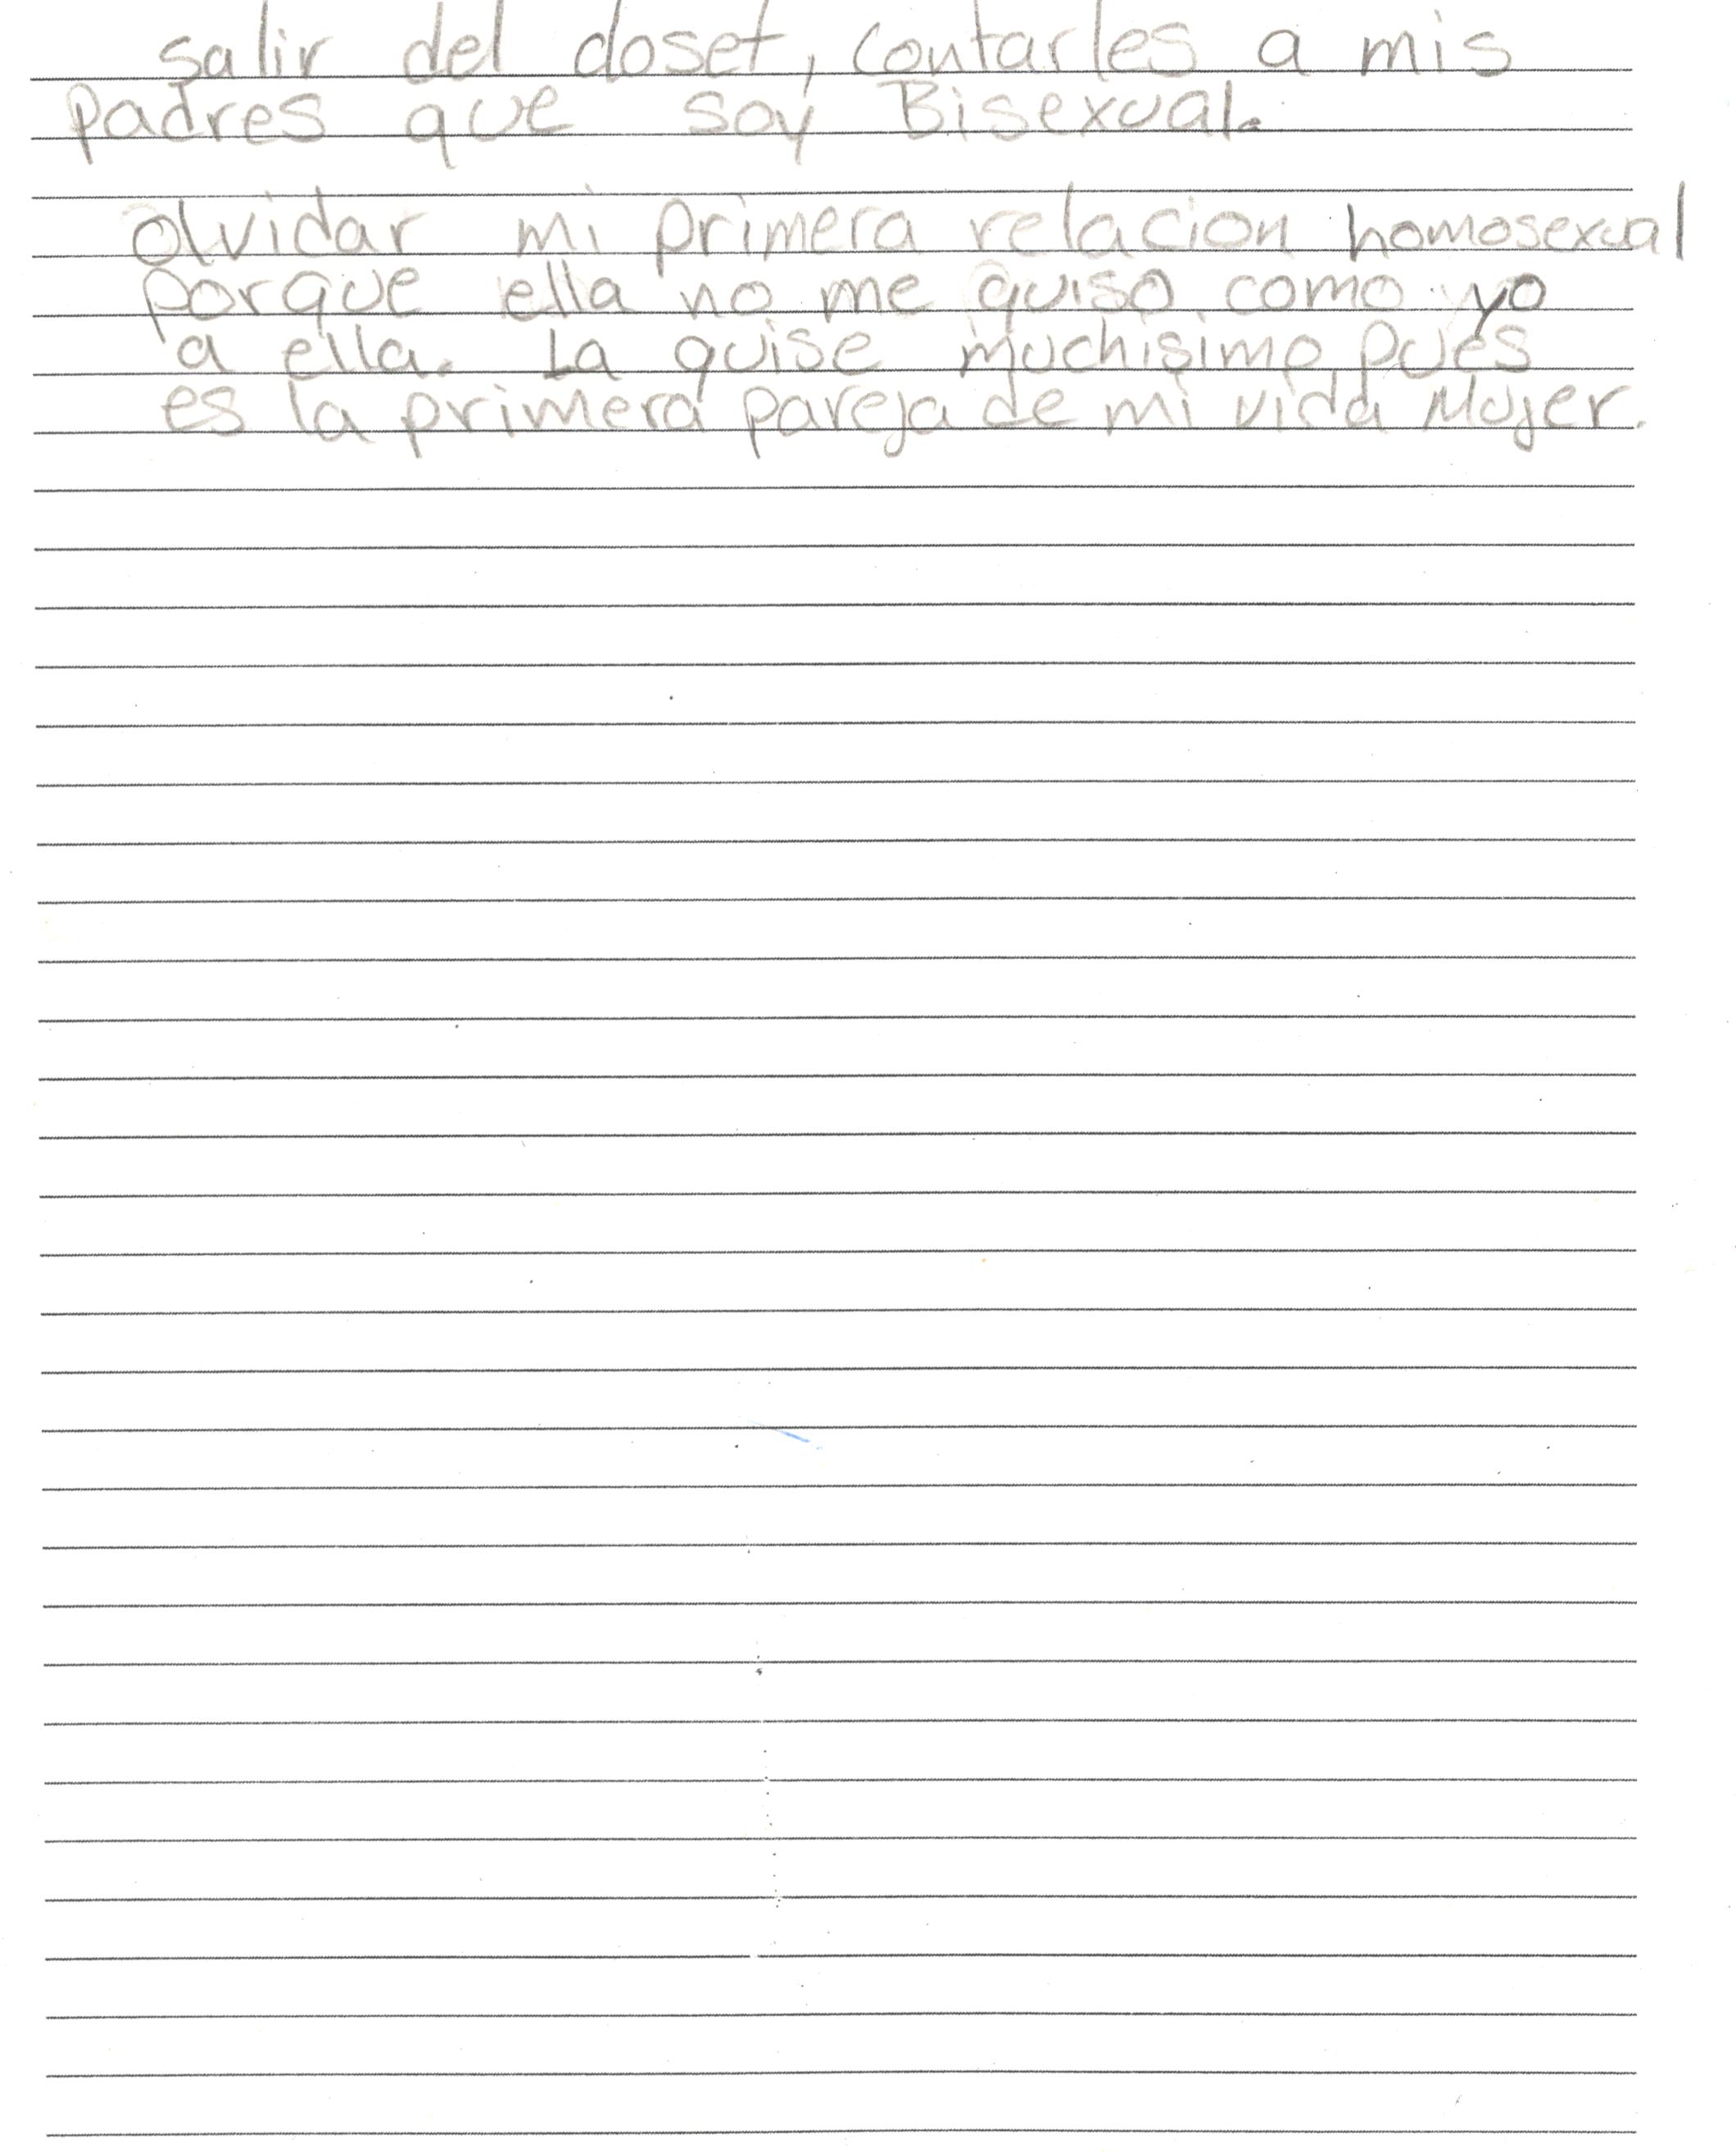 salir del closet, contarles a mis
padres que soy Bisexual.
olvidar mi primera relacion homosexual
porque ella no me quiso como yo
a ella. La quise muchisimo pues
es la primera pareja de mi vida Mujer.